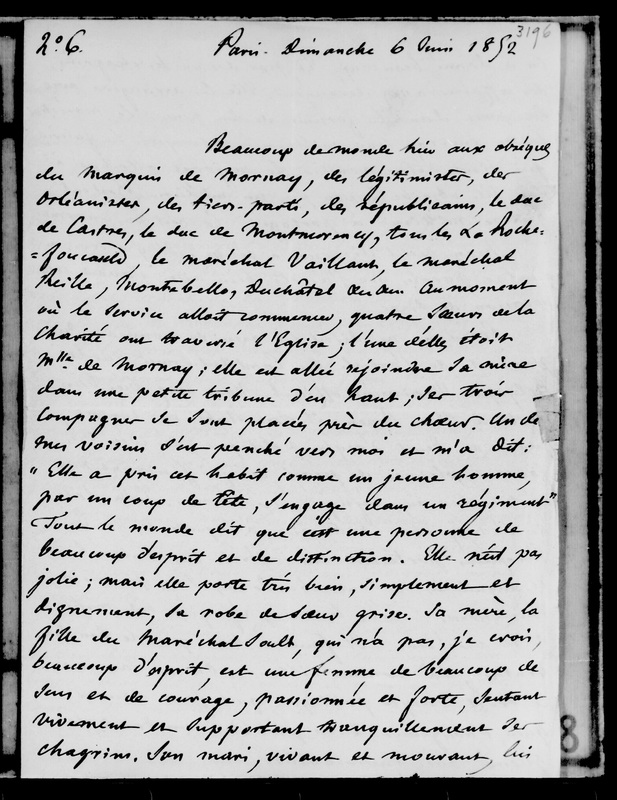 3196
2º 6. Paris. Dimanche 6 Juin 1852
Beaucoup de monde hier aux obsèques
du Marquis de Mornay, des légitimistes, des
Orléanistes, des tiers-parti, des républicains, le duc
de Castres, le duc de Montmorency, tous les La Roche-
=foucauld, le maréchal Vaillant, le maréchal
Reille, Montebello, Duchâtel &c &c. Au moment
où le service alloit commencer, quatre Sœurs de la
Charité ont traversé l'Eglise; l'une d'elles étoit
Mlle de Mornay; elle est allée rejoindre sa mère
dans une petite tribune d'en haut; ses trois
compagnes se sont placées près du chœur. Un de
mes voisins s'est penché vers moi et m'a dit:
"Elle a pris cet habit comme un jeune homme,
par un coup de tête, s'engage dans un régiment"
Tout le monde dit que c'est une personne de
beaucoup d'esprit et de distinction. Elle n'est pas
jolie; mais elle porte très bien, simplement et
dignement, sa robe de Sœur grise. Sa mère, la
fille du Maréchal Soult, qui n'a pas, je crois,
beaucoup d'esprit, est une femme de beaucoup de
sens et de courage, passionnée et forte, sentant
vivement et supportant tranquillement ses
chagrins. Son mari, vivant et mourant, lui
8